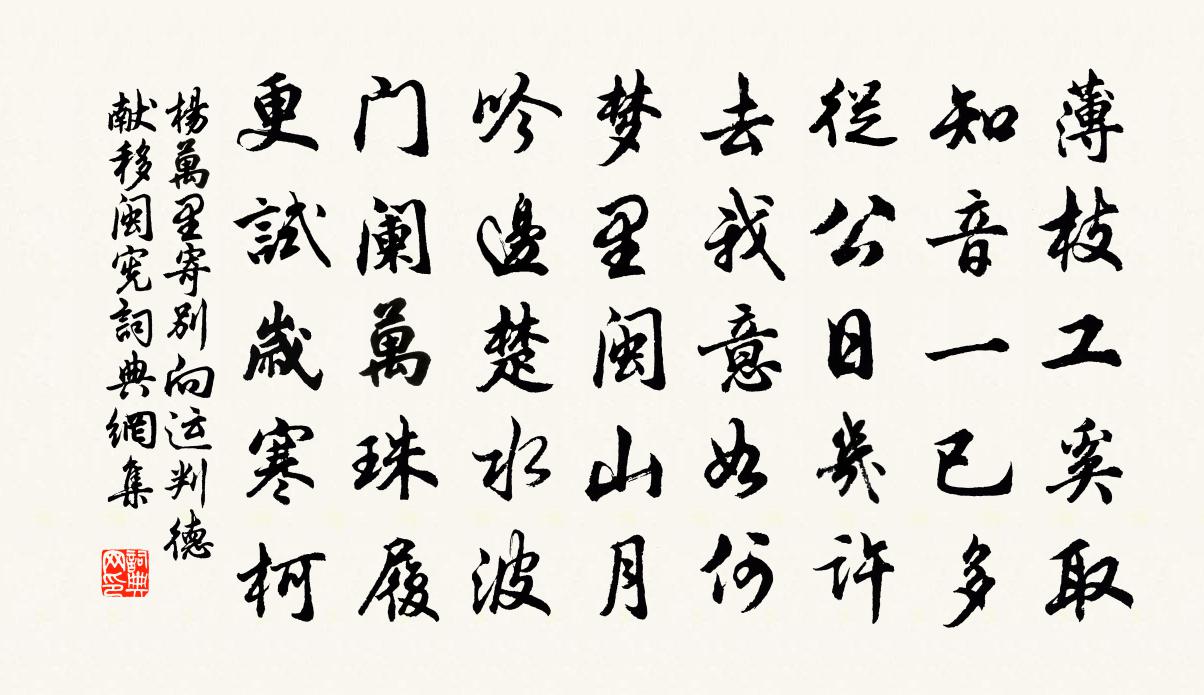 薄枝工奚取
知音一已多
從公日幾许
去我意如何
梦里闽山月
吟邊楚水波
门阑萬珠履
更試歲寒柯
楊萬里寄别向运判德
献移闽宪詞典網集
詞典网印